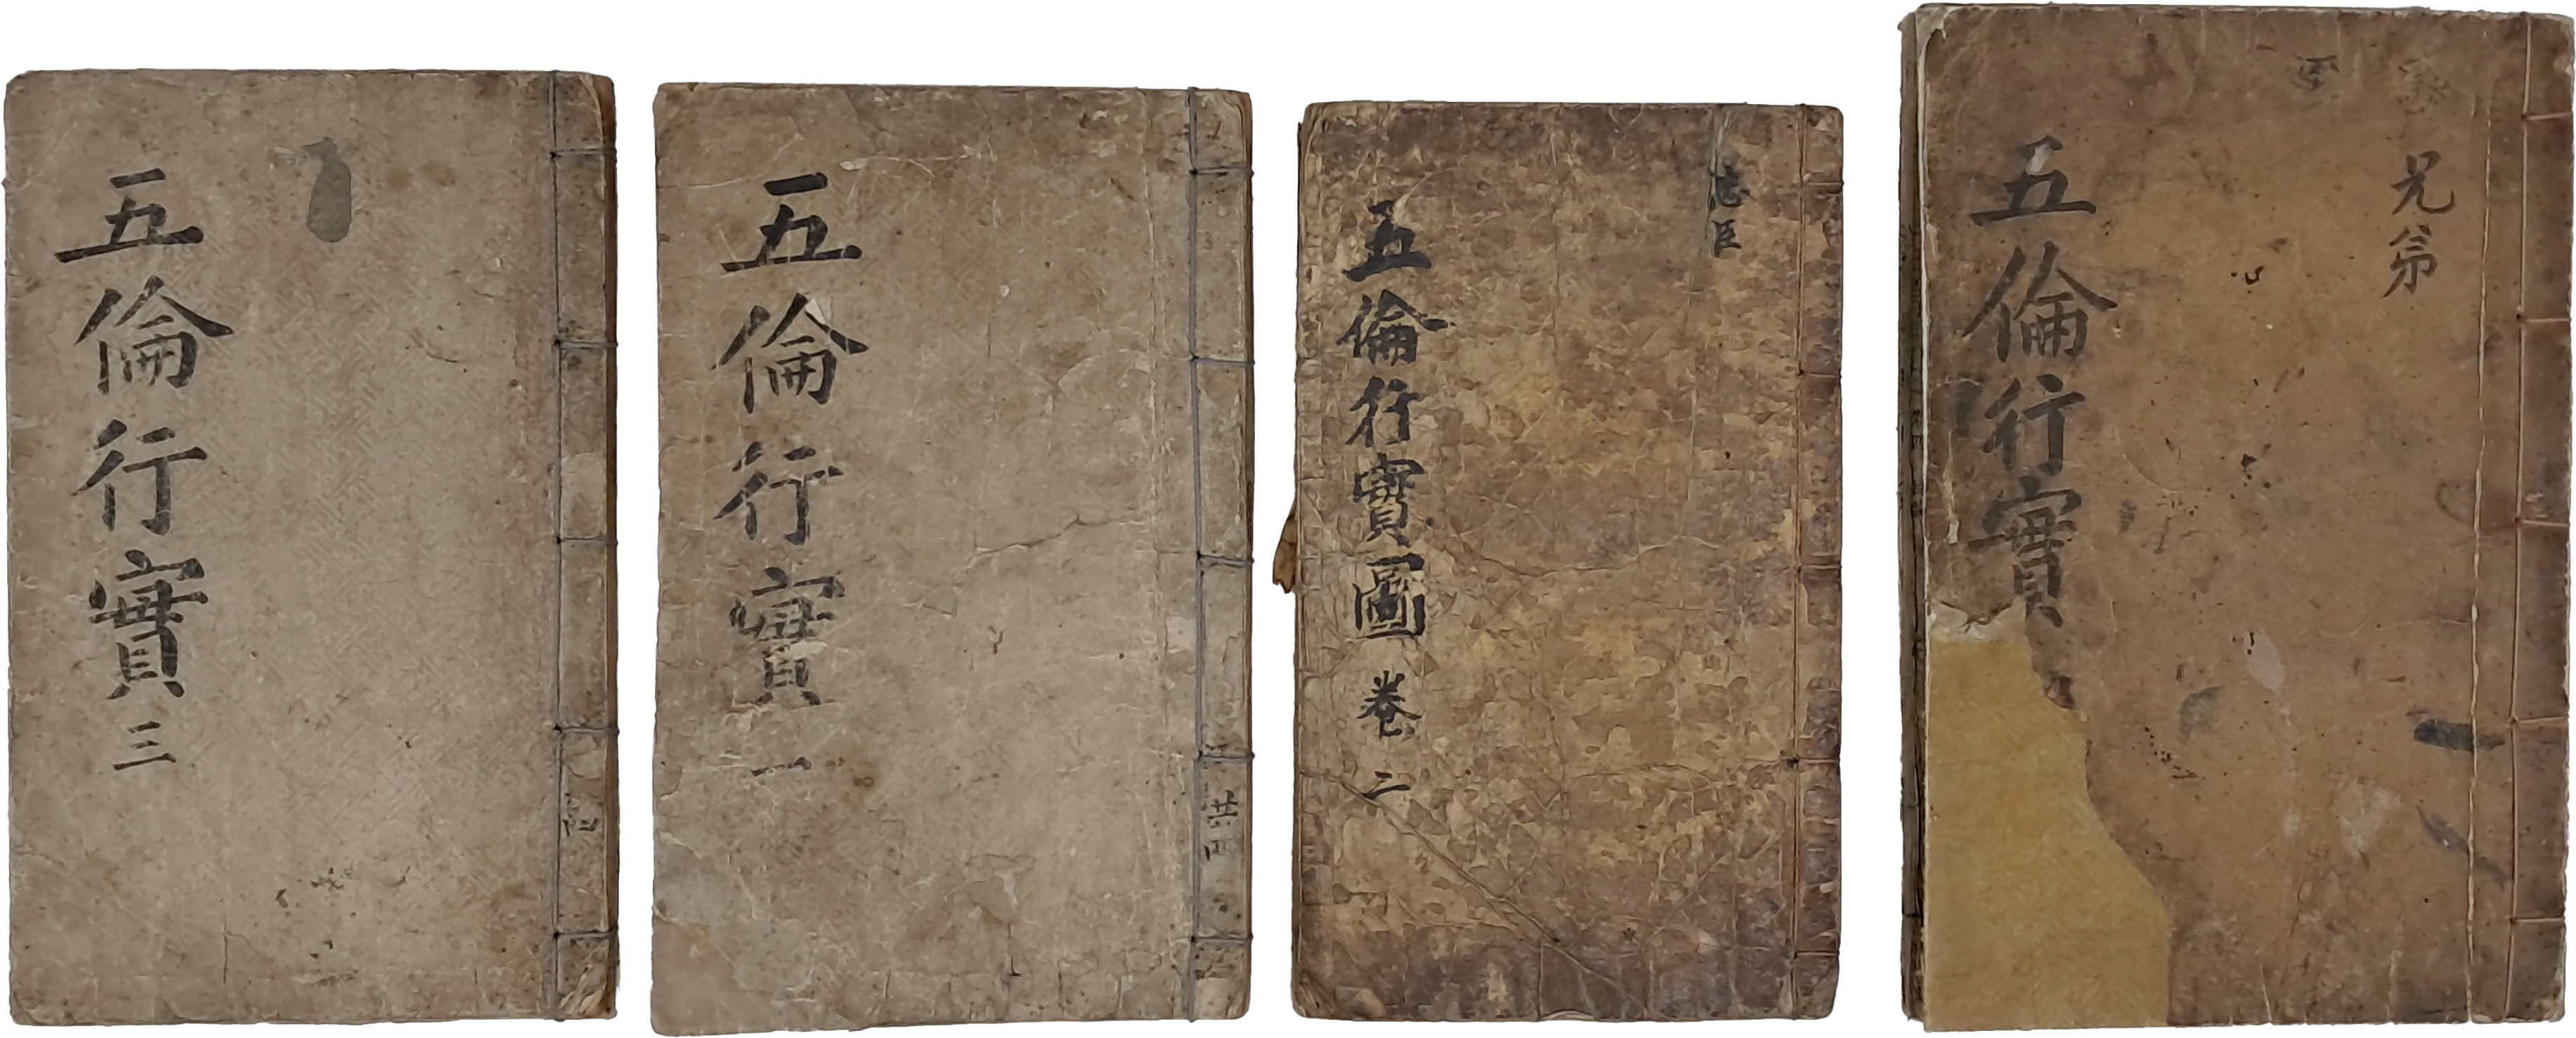 五倫行實 三
五倫行實 一
廿四
忠臣
五倫行實圖 卷二
兄弟
五倫行實